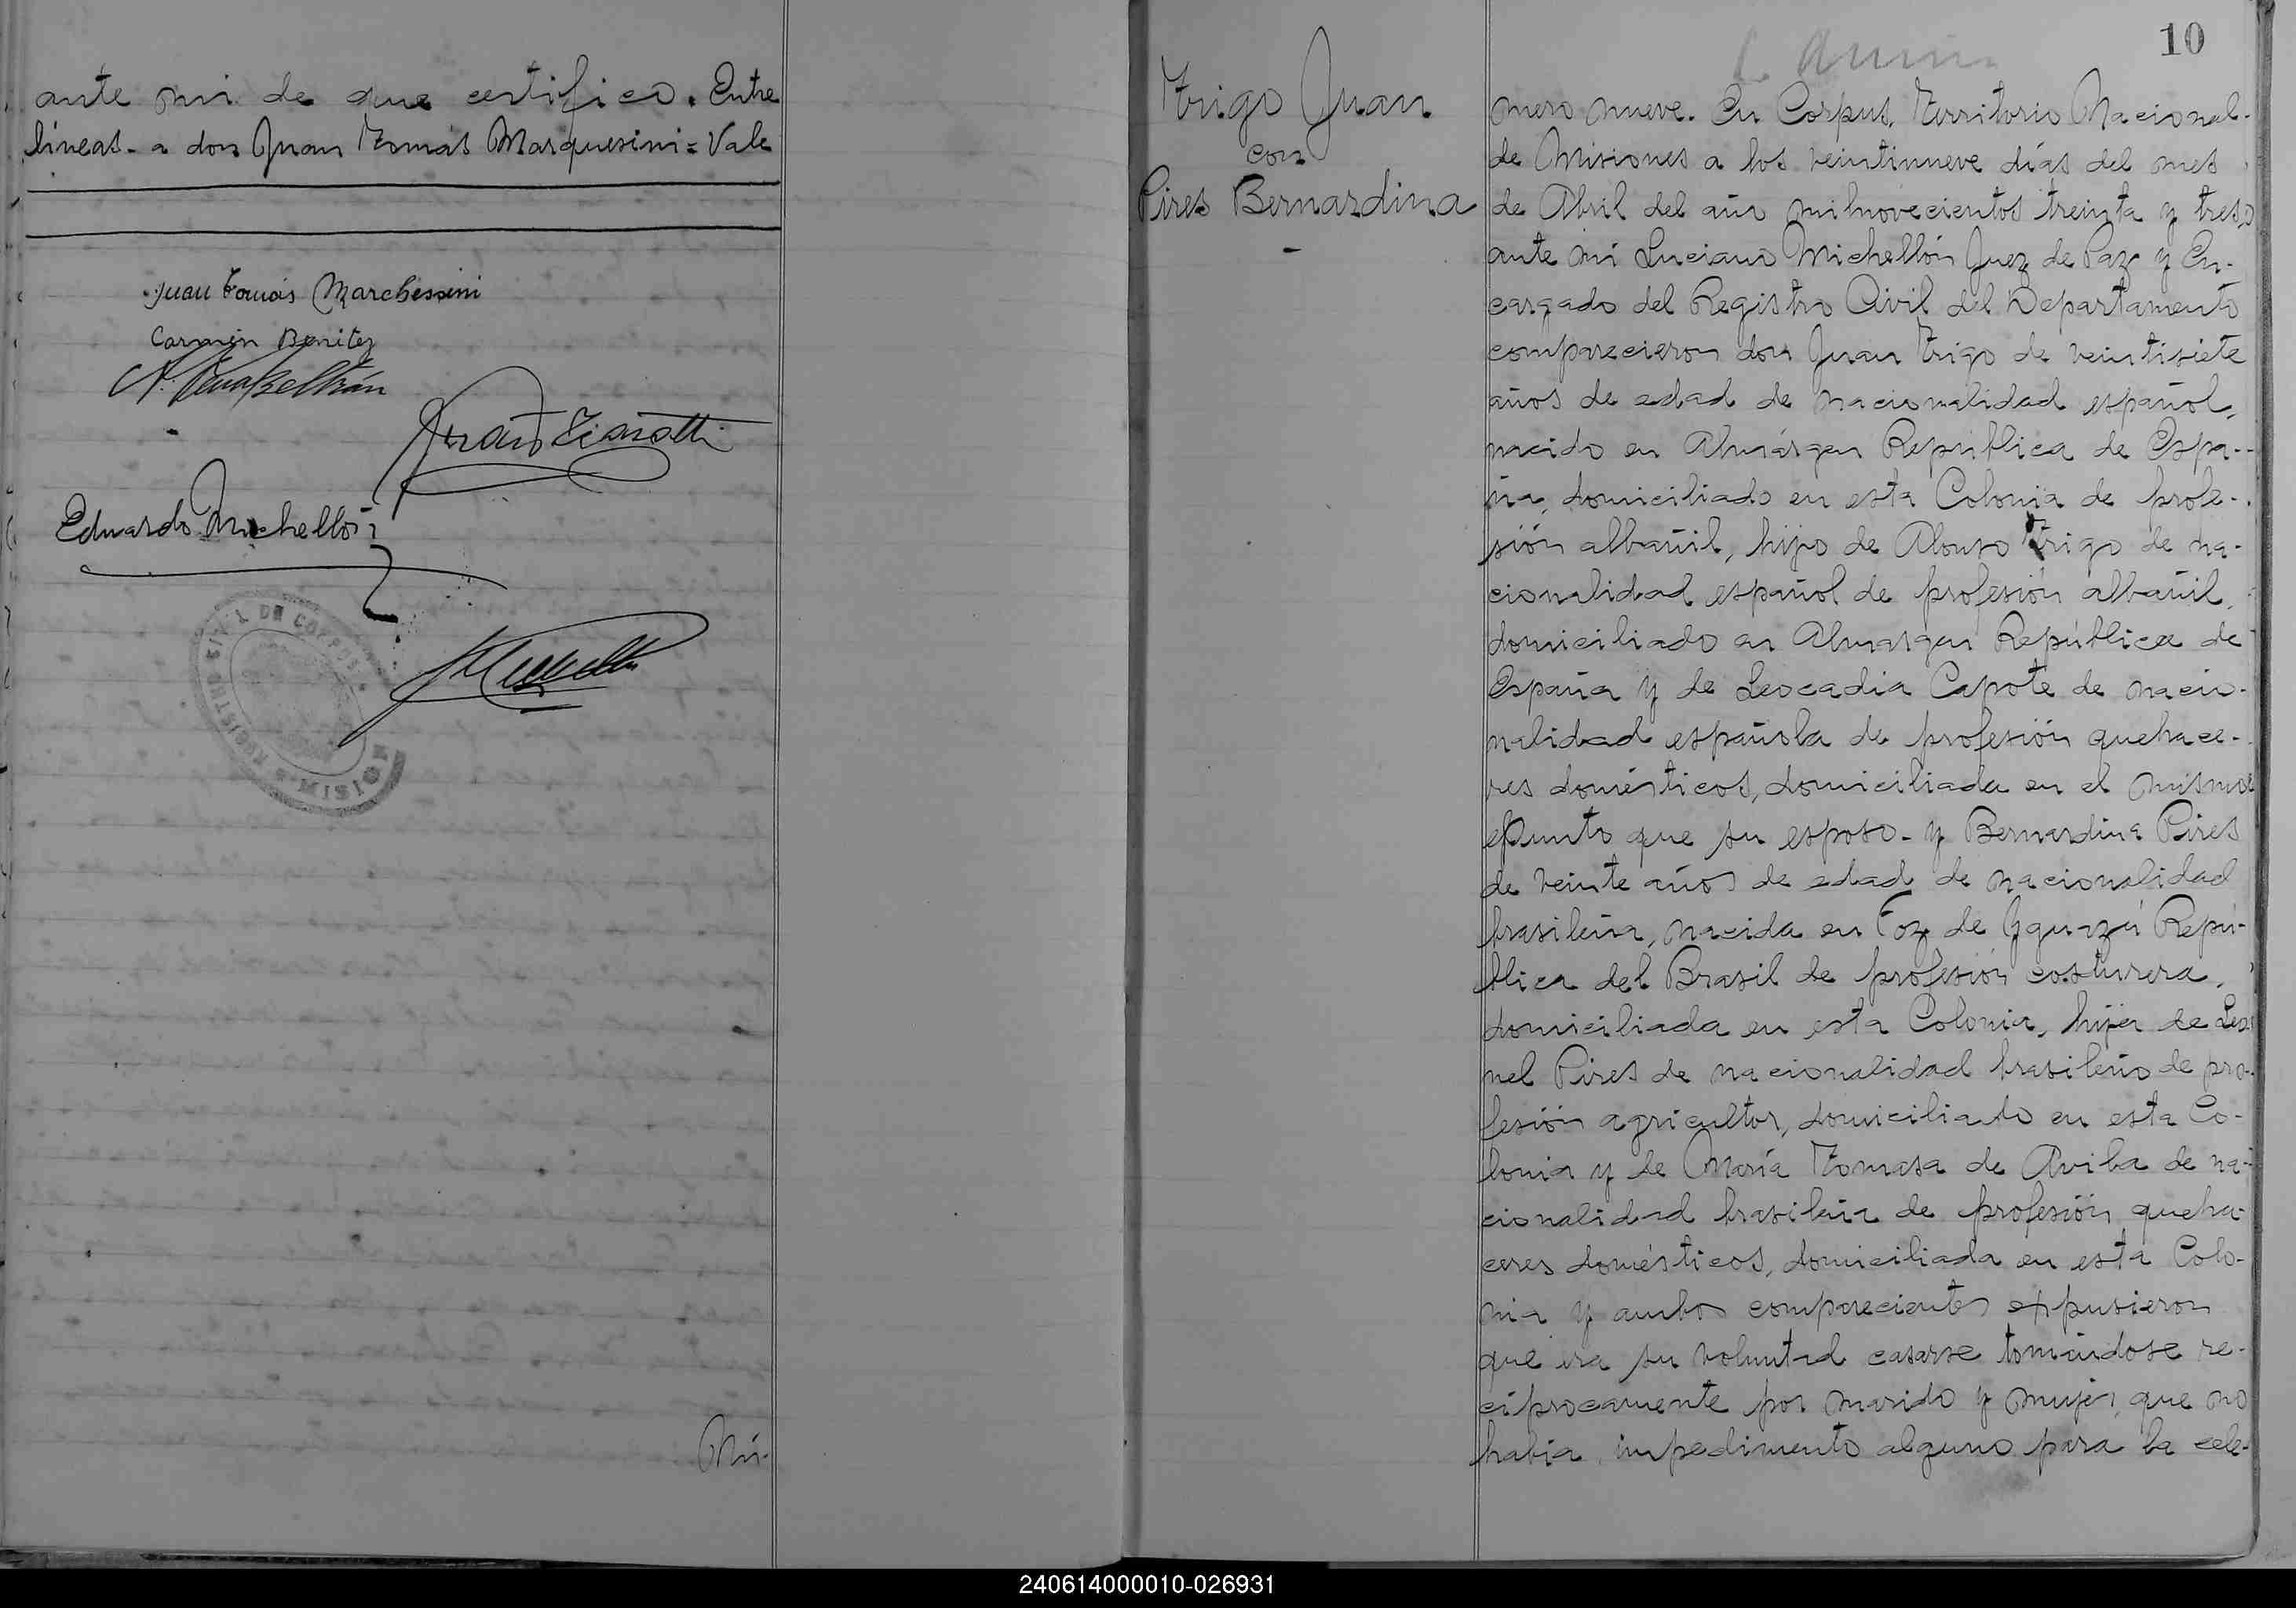 ante mi de que certifico. Entre
líneas- a don Juan Tomás Marquesini = Vale
Juan Tomás Marchessini
Carmen Benitez
Eduardo Michellón
REGISTRO CIVIL DE CORPUS
MISIONES
Nú-
10
Trigo Juan
con
Pires Bernardina
mero nueve. En Corpus, Territorio Nacional
de Misiones a los veintinueve días del mes
de Abril del año milnovecientos treinta y tres,
ante mi Luciano Michellón Juez de Paz y En-
cargado del Registro Civil del Departamento
comparecieron don Juan Trigo de veintisiete
años de edad de nacionalidad español,
nacido en Almárgen República de Espa-
ña, domiciliado en esta Colonia de profe-
sión albañil, hijo de Alonso Trigo de na-
cionalidad español de profesión albañil,
domiciliado en Almargen República de
España y de Leocadia Capote de nacio-
nalidad española de profesión quehace-
res domésticos, domiciliada en el mismo
punto que su esposo- y Bernardina Pires
de veinte años de edad de nacionalidad
brasileña, nacida en Foz de Yguazú Repú-
blica del Brasil de profesión costurera,
domiciliada en esta Colonia, hija de Leo
nel Pires de nacionalidad brasileño de pro-
fesión agricultor, domiciliado en esta Co-
lonia y de María Tomasa de Avila de na-
cionalidad brasileña de profesión queha-
ceres domésticos, domiciliada en esta Colo-
nia y ambos comparecientes expusieron
que era su voluntad casarse tomándose re-
ciprocamente por marido y mujer, que no
habia impedimento alguno para la cele-
240614000010-026931